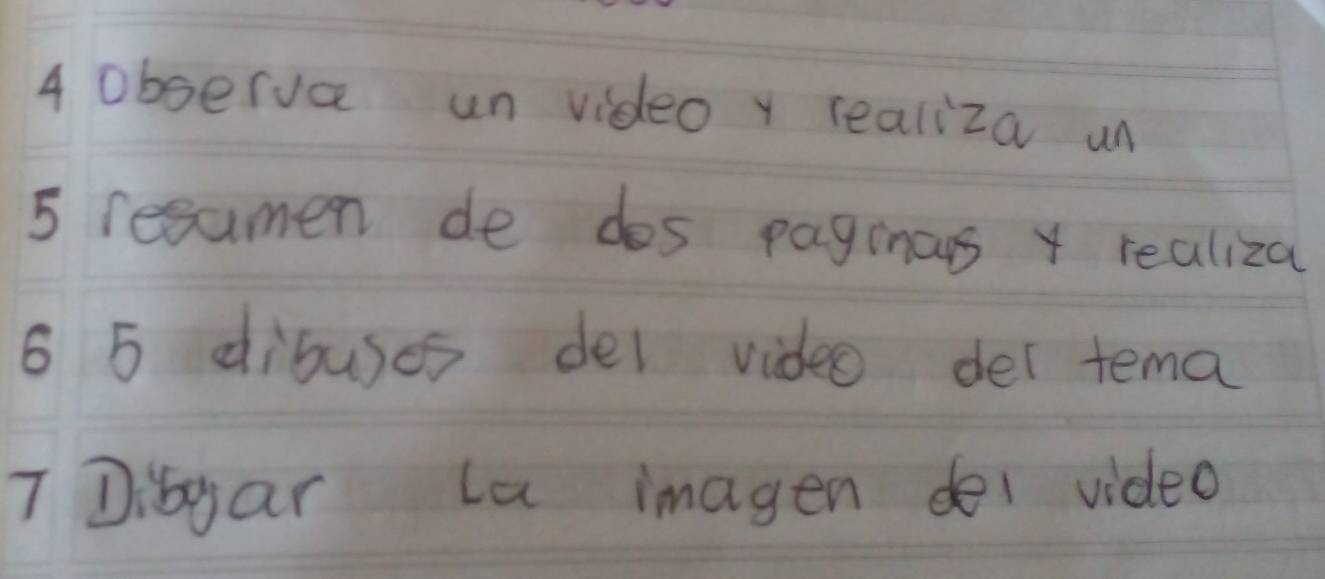 4 Observa un video y realiza un
5 resumen de dos paginas y realiza
6 5 dibujos del video del tema
7 Dibujar La imagen del video